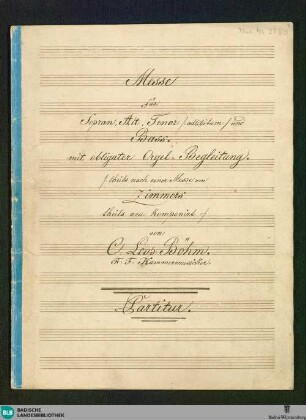 Messe
für
Sopran, Alt, Tenor /: ad libitum :/ und
Bass.
mit obligater Orgel-Begleitung.
/: theils nach einer Messe von
Zimmers
theils neu komponirt :/
von
C. Leop. Böhm.
F. F. Kammermusiker
Partitur.
BLB
BADISCHE
LANDESBIBLIOTHEK
Baden-Württemberg